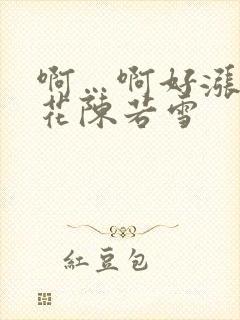 啊…啊好漲
花陳若雪
紅豆包